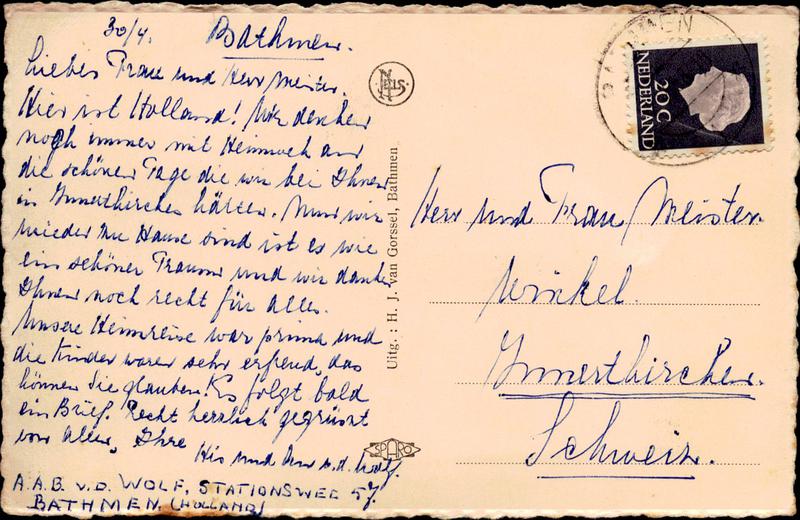 30/4. Bathmen.
Liebes Frau und Herr Meister.
Hier ist Holland! Wir denken
noch immer mit Heimweh an
die schönen Tage die wir bei Ihnen
in Innertkirchen hatten. Nun wir
wieder zu Hause sind ist es wie
ein schöner Traum und wir danken
Ihnen noch recht für alles.
Unsere Heimreise war prima und
die Kinder waren sehr erfreud, das
können Sie glauben. Es folgt bald
ein Brief. Recht herzlich gegrüsst
von allen, Ihre
und v.d. Wolf.
A.A.B. v.d. WOLF, STATIONSWEG 57
BATHMEN (HOLLAND)
NELS
Uitg.: H. J. van Gorssel, Bathmen
SPARO
BATHMEN
NEDERLAND
20 C
Herr und Frau Meister.
Winkel.
Innertkirchen.
Schweiz.